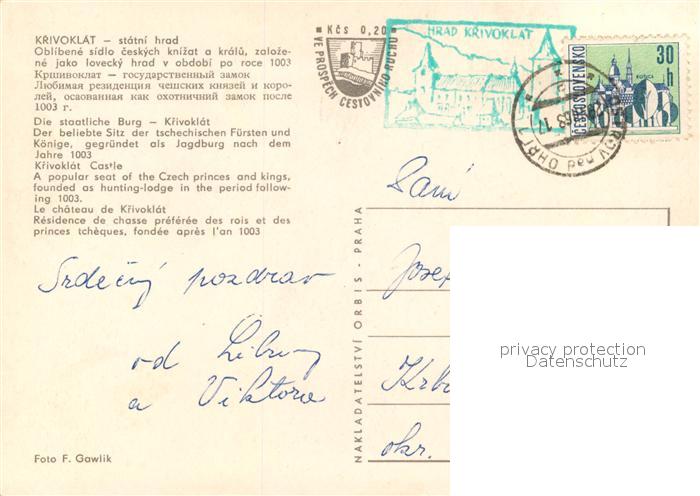 KŘIVOKLÁT – státní hrad
Oblíbené sídlo českých knížat a králů, založe-
né jako lovecký hrad v období po roce 1003
Кршивоклат — государственный замок
Любимая резиденция чешских князей и коро-
лей, осаованная как охотничий замок после
1003 г.
Die staatliche Burg – Křivoklát
Der beliebte Sitz der tschechischen Fürsten und
Könige, gegründet als Jagdburg nach dem
Jahre 1003
Křivoklát Castle
A popular seat of the Czech princes and kings,
founded as hunting-lodge in the period follow-
ing 1003.
Le château de Křivoklát
Résidence de chasse préférée des rois et des
princes tchèques, fondée après l'an 1003
Kčs 0,20
VE PROSPĚCH CESTOVNÍHO RUCHU
HRAD KŘIVOKLÁT
ČESKOSLOVENSKO
30
h
KOŠICE
OV nad OHŘÍ
Srdečný pozdrav
od Libuny
a Viktora
NAKLADATELSTVÍ ORBIS - PRAHA
Paní
Josef
okr.
privacy protection
Datenschutz
Foto F. Gawlik